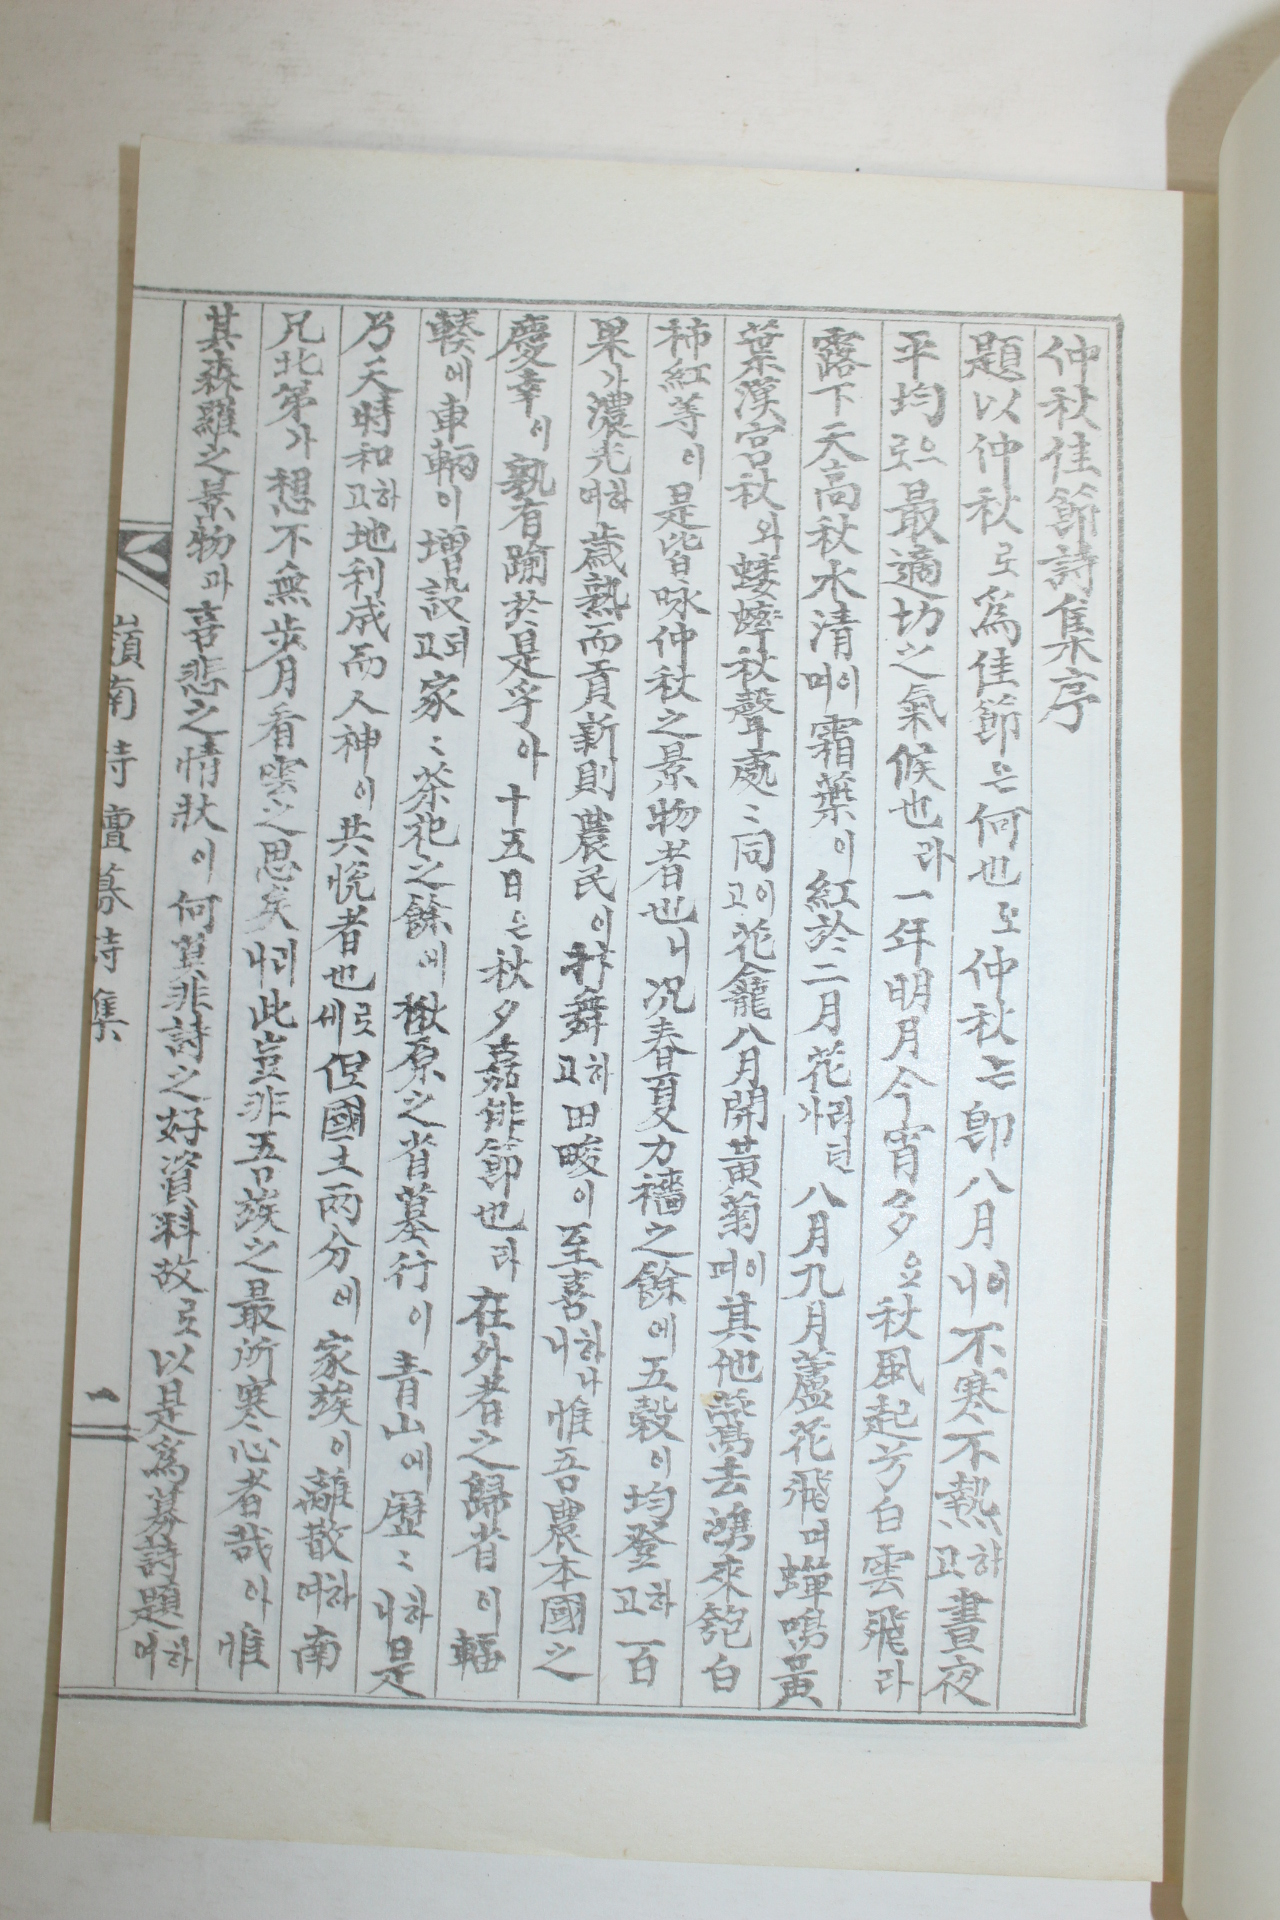 仲秋佳節詩集序
題以仲秋로爲佳節은何也오仲秋는卽八月이니不寒不熱하고晝夜
平均으로最適切之氣候也라一年明月今宵多요秋風起兮白雲飛라
露下天高秋水清이며霜葉이紅於二月花라던가八月九月蘆花飛며蟬鳴黃
葉漢宮秋와蟋蟀秋聲處〻同이고花龕八月開黃菊이며其他鶯去鴻來匏白
柿紅等이是皆咏仲秋之景物者也니况春夏力穡之餘에五穀이均登하고百
果가濃光하며歲熟而貢新則農民이抃舞하고田畯이至喜하나니惟吾農本國之
慶幸이孰有踰於是乎아十五日은秋夕嘉俳節也라在外者之歸省이輻
輳에車輛이增設되고家〻茶祀之餘에楸原之省墓行이青山에歷〻하니是
乃天時和하고地利成而人神이共悅者也로세但國土兩分에家族이離散하며南
兄北弟가想不無步月看雲之思矣리니此豈非吾族之最所寒心者哉아惟
其森羅之景物과喜悲之情狀이何莫非詩之好資料故로以是爲募詩題하며
嶺南詩壇募詩集
一